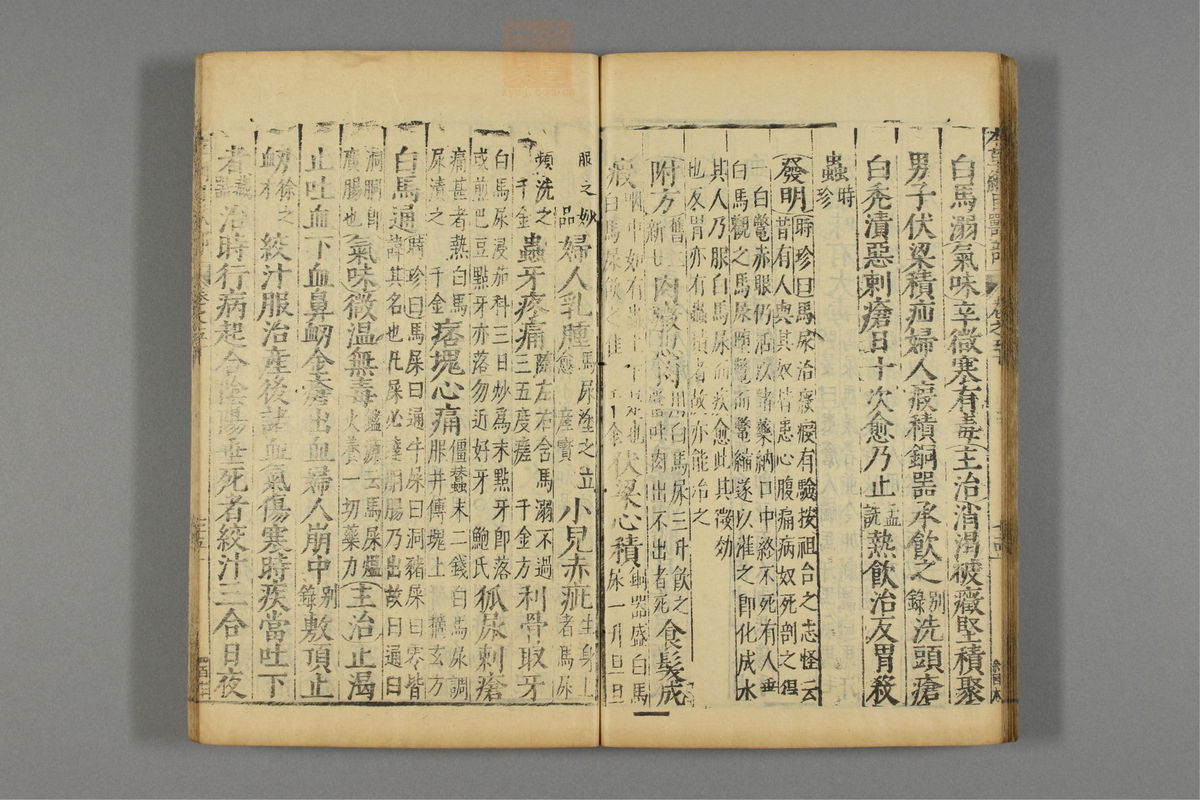 白馬溺氣味辛微寒有毒主治消渴破癥堅積聚
男子伏梁積疝婦人瘕積銅器承飲之別錄洗頭瘡
白禿漬惡刺瘡日十次愈乃止孟詵熱飲治反胃殺
蟲時珍
發明時珍曰馬尿治癥瘕有驗按祖台之志怪云
昔有人與其奴皆患心腹痛病奴死剖之得
一白鱉赤眼仍活以諸藥納口中終不死有人乘
白馬觀之馬尿墮鱉而鱉縮遂以灌之即化成水
其人乃服白馬尿而疾愈此其徵効
也反胃亦有蟲積者故亦能治之
附方舊 新 肉癥思 用白馬尿三升飲之
當吐肉出不出者死食髮成
瘕 白馬尿飲之佳 千金伏梁心積銅器盛白馬
尿一升旦旦
服之妙
品婦人乳腫馬尿塗之立
愈 產寶小兒赤疵生身上
者馬尿
頻洗之
千金蟲牙疼痛隨左右含馬溺不過
三五度瘥 千金方利骨取牙
白馬尿浸茄科三日炒為末點牙即落
或煎巴豆點牙亦落勿近好牙 鮑氏狐尿刺瘡
痛甚者熱白馬
尿漬之 千金痞塊心痛僵蠶末二錢白馬尿調
服并傅塊上 摘玄方
白馬通時珍曰馬屎曰通牛屎曰洞豬屎曰零皆
諱其名也凡屎必達胴腸乃出故曰通曰
洞胴即
廣腸也氣味微溫無毒鑑源云馬屎爐
火養一切藥力主治止渴
止吐血下血鼻衄金瘡出血婦人崩中別錄敷頂止
衄徐之才絞汁服治產後諸血氣傷寒時疾當吐下
者藏器治時行病起合陰陽垂死者絞汁三合日夜